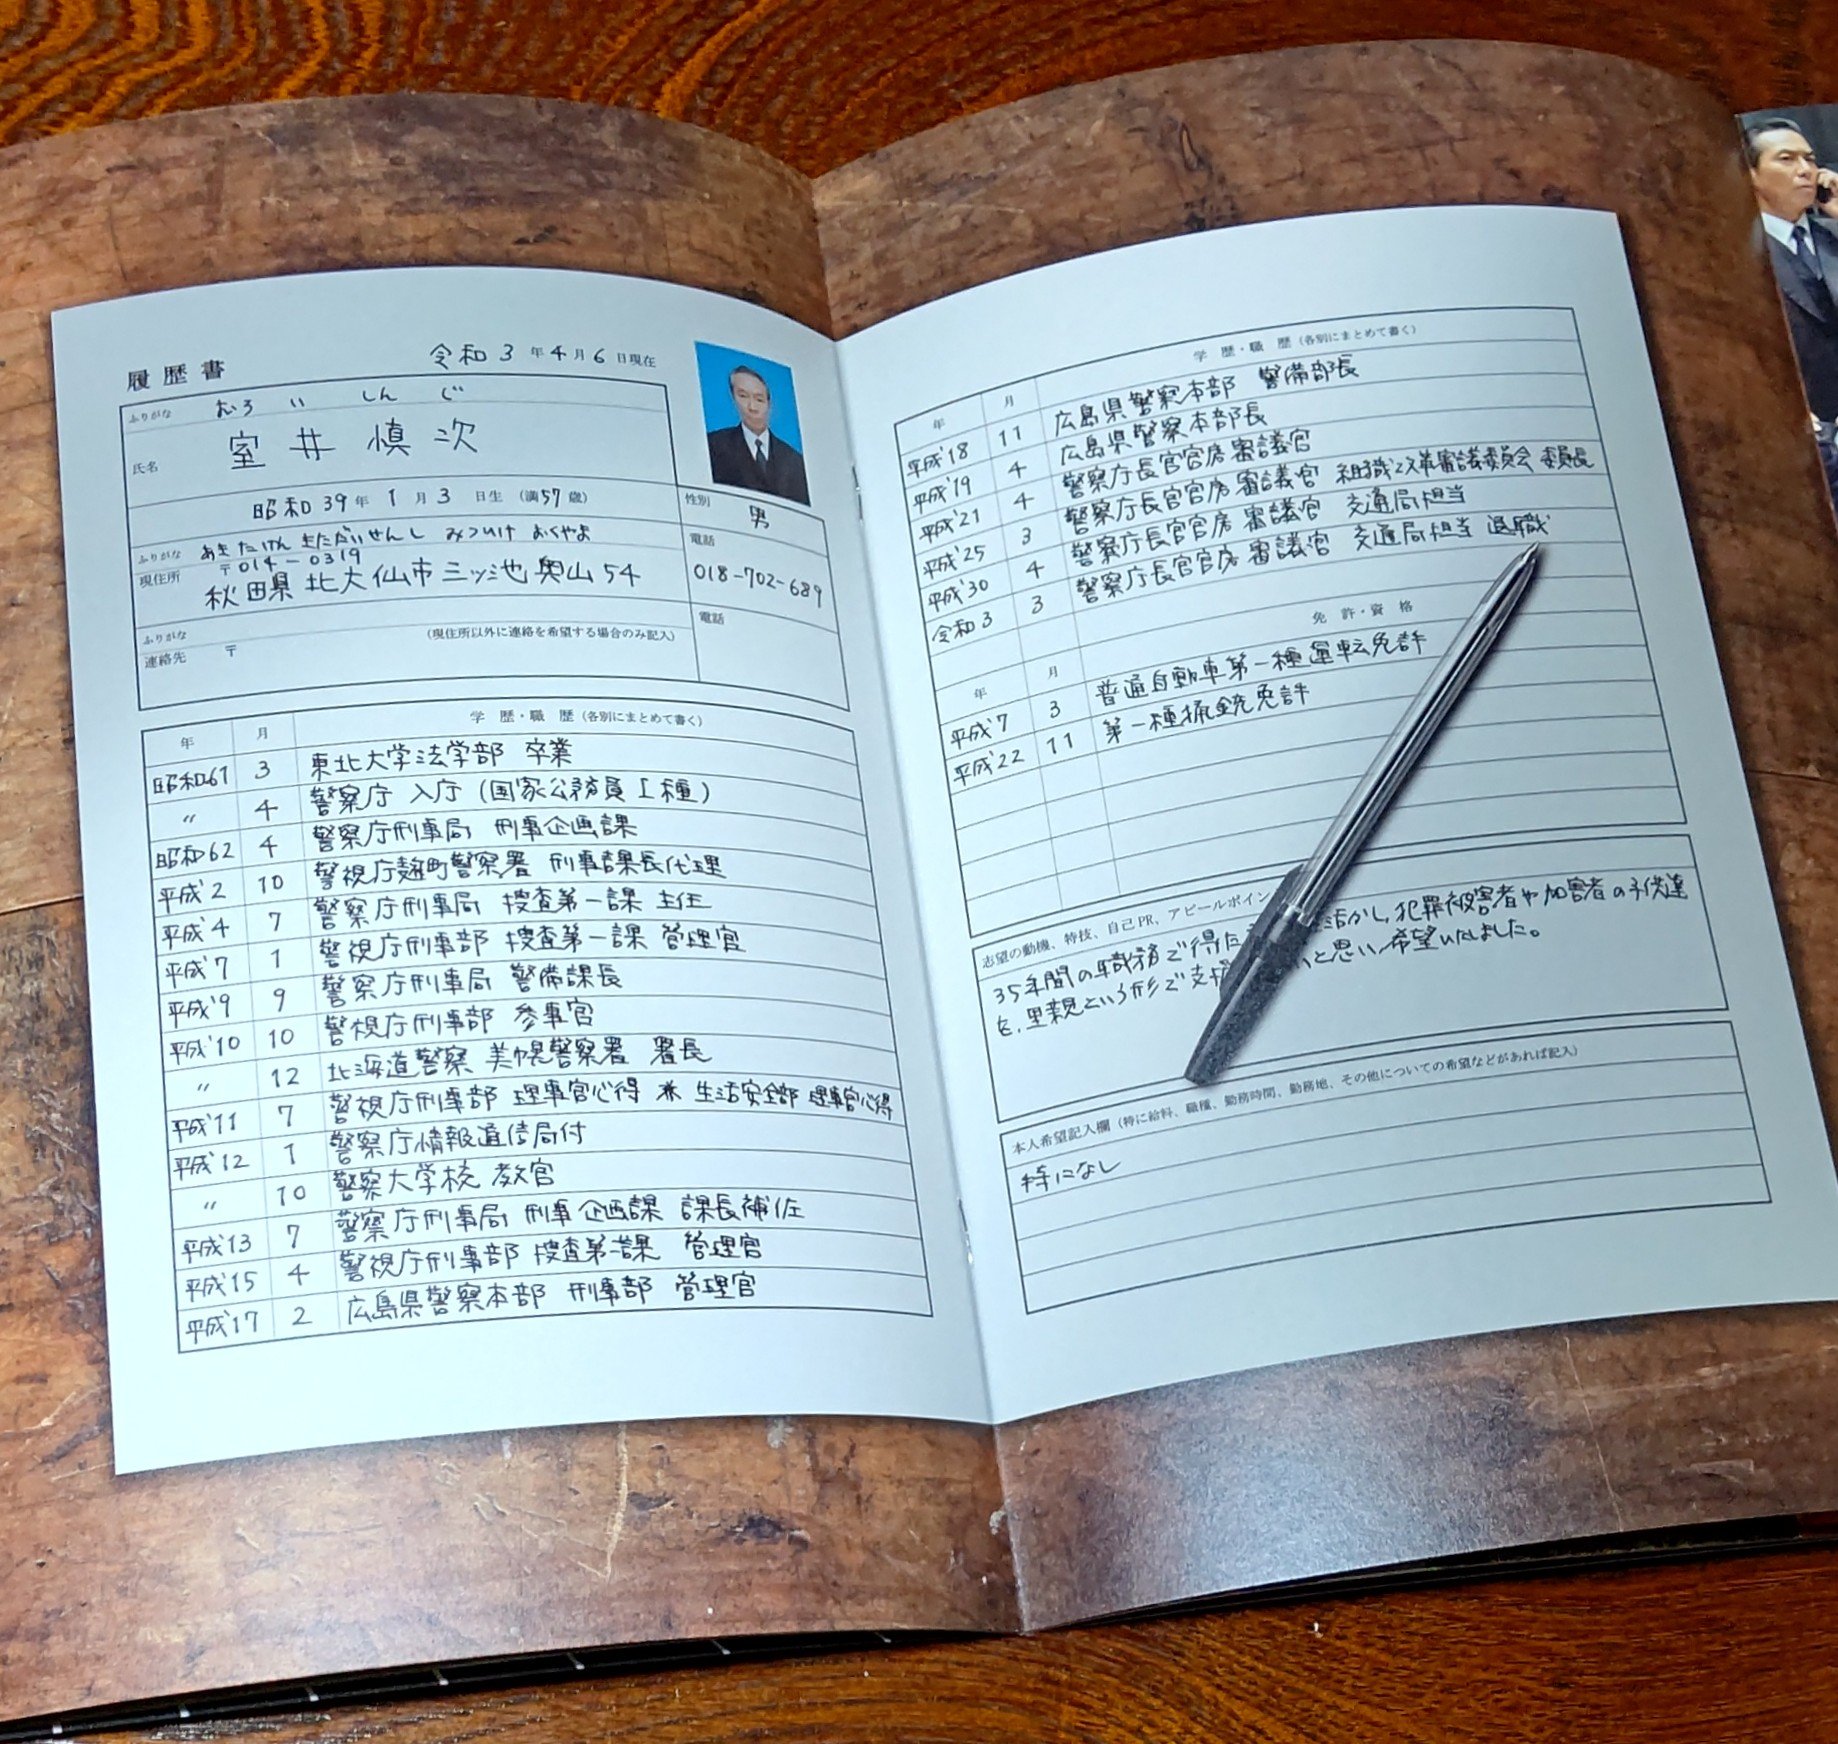 履歴書
令和 3 年 4 月 6 日現在
ふりがな むろ い しん じ
氏名 室井 慎次
昭和 39 年 1 月 3 日生 (満 57 歳)
性別 男
ふりがな あきたけん きただいせんし みついけ おくやま
現住所 〒014-0319
秋田県北大仙市三ッ池奥山54
電話
018-702-689
ふりがな
連絡先 〒 (現住所以外に連絡を希望する場合のみ記入)
電話
年 月 学 歴・職 歴 (各別にまとめて書く)
昭和61 3 東北大学法学部 卒業
〃 4 警察庁 入庁 (国家公務員Ⅰ種)
昭和62 4 警察庁刑事局 刑事企画課
平成2 10 警視庁麹町警察署 刑事課長代理
平成4 7 警察庁刑事局 捜査第一課 主任
平成7 1 警視庁刑事部 捜査第一課 管理官
平成9 9 警察庁刑事局 警備課長
平成10 10 警視庁刑事部 参事官
〃 12 北海道警察 美幌警察署 署長
平成11 7 警視庁刑事部 理事官心得 兼 生活安全部 理事官心得
平成12 1 警察庁情報通信局付
〃 10 警察大学校 教官
平成13 7 警察庁刑事局 刑事企画課 課長補佐
平成15 4 警視庁刑事部 捜査第一課 管理官
平成17 2 広島県警察本部 刑事部 管理官
年 月 学 歴・職 歴 (各別にまとめて書く)
平成18 11 広島県警察本部 警備部長
平成19 4 広島県警察本部長
平成21 4 警察庁長官官房審議官
平成25 3 警察庁長官官房審議官 組織改革審議委員会 委員長
平成30 4 警察庁長官官房審議官 交通局担当
令和3 3 警察庁長官官房審議官 交通局担当 退職
年 月 免 許・資 格
平成7 3 普通自動車第一種運転免許
平成22 11 第一種猟銃免許
志望の動機、特技、自己PR、アピールポイン
35年間の職務で得た 活かし、犯罪被害者や加害者の子供達
を、里親という形で支援 と思い希望いたしました。
本人希望記入欄 (特に給料、職種、勤務時間、勤務地、その他についての希望などがあれば記入)
特になし